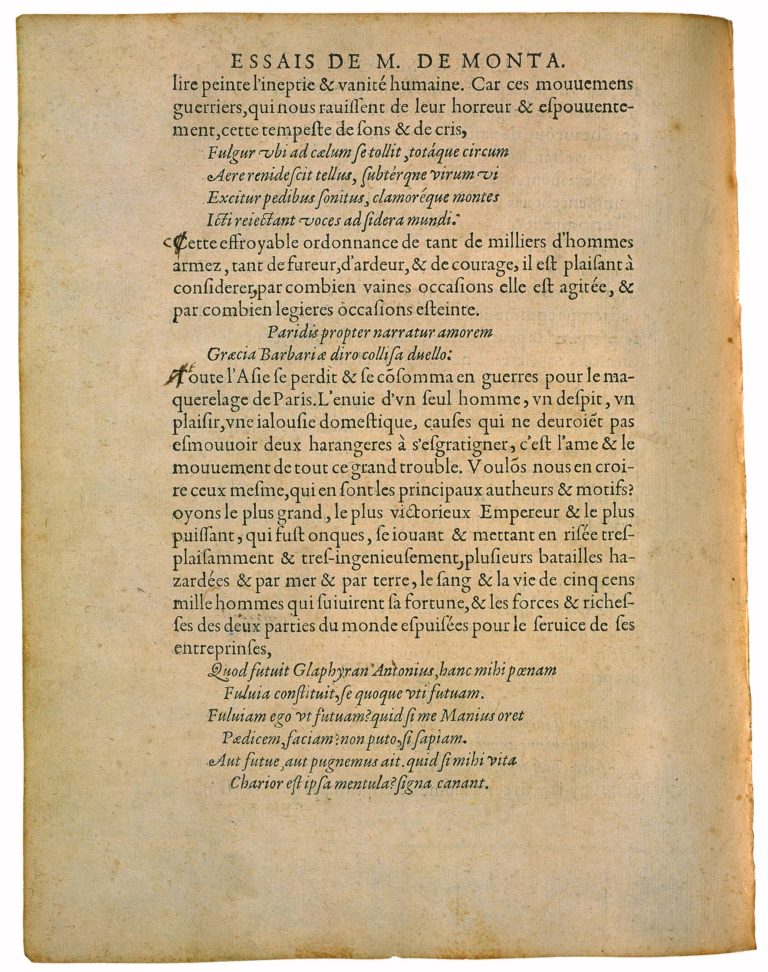 ESSAIS DE M. DE MONTA.
lire peinte l'ineptie & vanité humaine. Car ces mouuemens
guerriers,qui nous rauiſſent de leur horreur & eſpouuente-
ment,cette tempeſte de ſons & de cris,
Fulgur vbi ad cælum ſe tollit, totáque circum
Aere renideſcit tellus, ſubtérque virum vi
Excitur pedibus ſonitus, clamoréque montes
Icti reiectant voces ad ſidera mundi:
Cette effroyable ordonnance de tant de milliers d'hommes
armez, tant de fureur,d'ardeur, & de courage, il eſt plaiſant à
conſiderer,par combien vaines occaſions elle eſt agitée, &
par combien legieres occaſions eſteinte.
Paridis propter narratur amorem
Græcia Barbariæ diro colliſa duello:
Toute l'Aſie ſe perdit & ſe cõſomma en guerres pour le ma-
querelage de Paris. L'enuie d'vn ſeul homme, vn deſpit, vn
plaiſir,vne ialouſie domeſtique, cauſes qui ne deuroiẽt pas
eſmouuoir deux harangeres à s'eſgratigner, c'eſt l'ame & le
mouuement de tout ce grand trouble. Voulõs nous en croi-
re ceux meſme,qui en ſont les principaux autheurs & motifs?
oyons le plus grand, le plus victorieux Empereur & le plus
puiſſant, qui fuſt onques, ſe iouant & mettant en riſée treſ-
plaiſamment & treſ-ingenieuſement,pluſieurs batailles ha-
zardées & par mer & par terre, le ſang & la vie de cinq cens
mille hommes qui ſuiuirent ſa fortune, & les forces & richeſ-
ſes des deux parties du monde eſpuiſées pour le ſeruice de ſes
entreprinſes,
Quod futuit Glaphyran Antonius, hanc mihi pœnam
Fuluia conſtituit, ſe quoque vti futuam.
Fuluiam ego vt futuam? quid ſi me Manius oret
Pædicem, faciam? non puto, ſi ſapiam.
Aut futue, aut pugnemus ait. quid ſi mihi vita
Charior eſt ipſa mentula? ſigna canant.